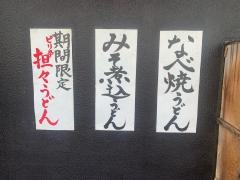 なべ焼うどん
みそ煮込うどん
期間限定
ピリ辛
担々うどん